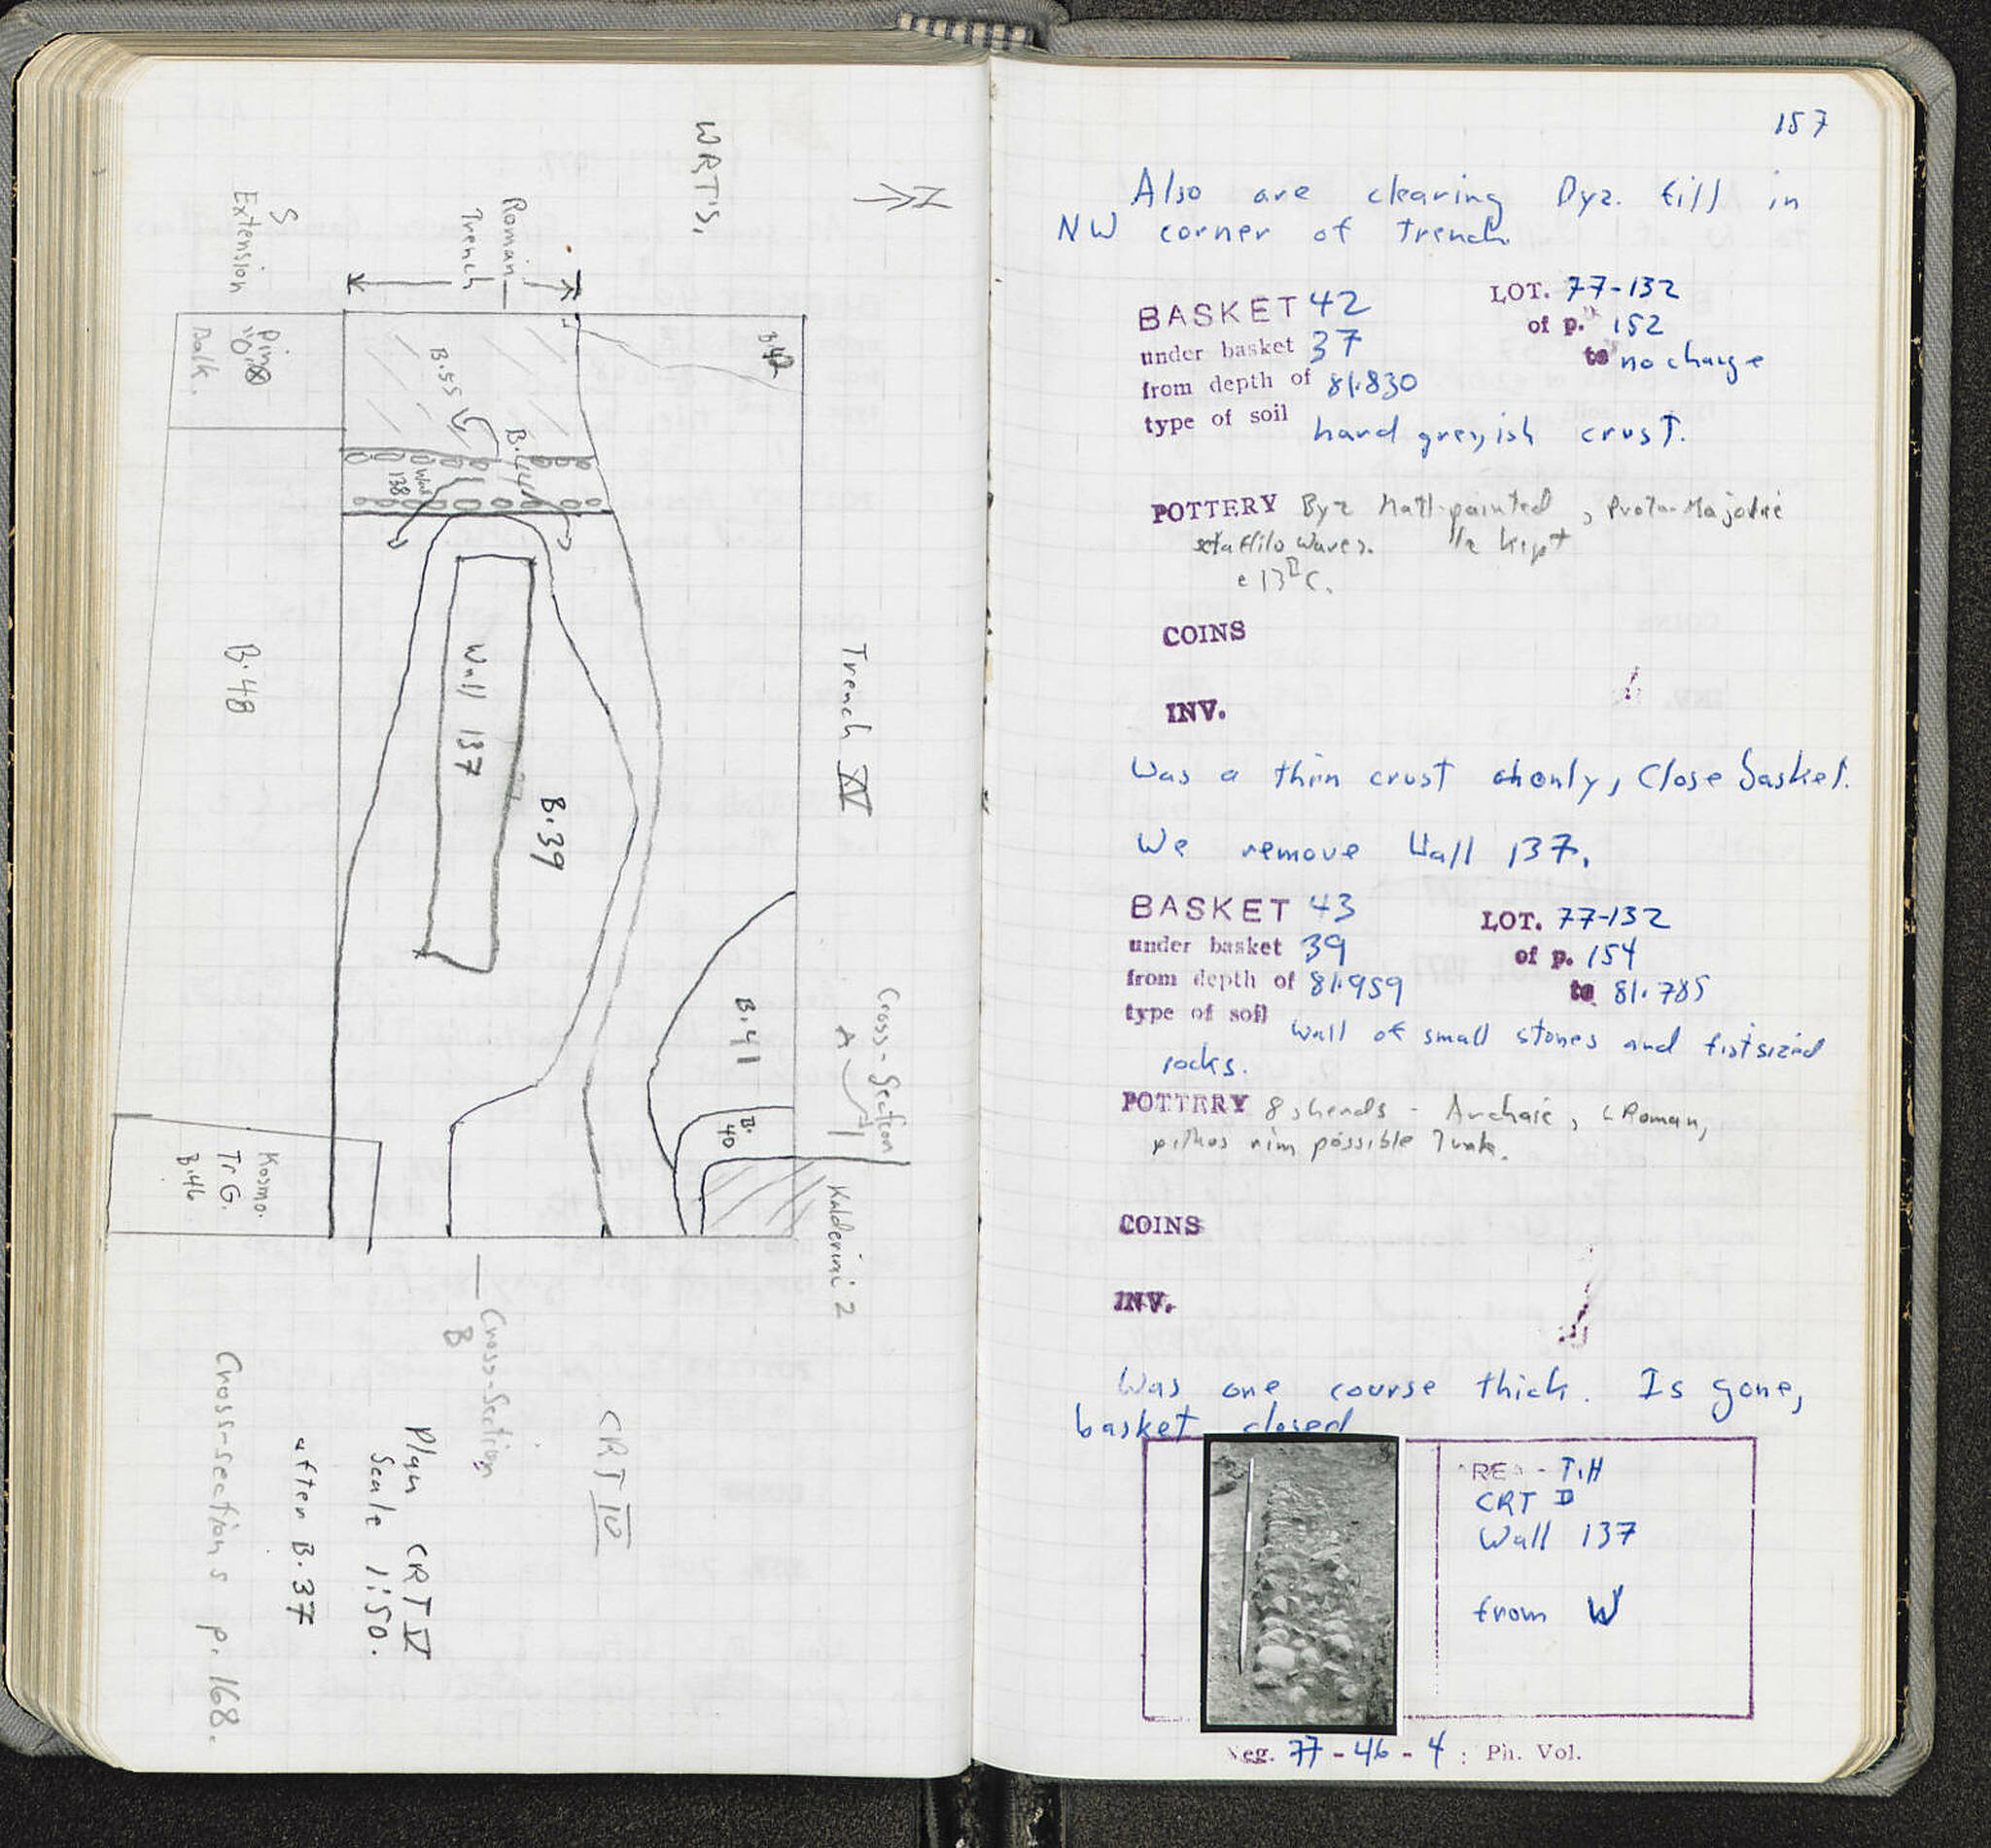 WRT'S,
N
Roman
Trench
S
Extension
Pino
Balk.
B.42
B.55
B.44
Wall
138
Trench XV
Wall 137
B.39
B.48
B.41
B.
40
Cross-Section
A
Kalderimi 2
Kosmo.
Tr G.
B.46
Cross-Section
B
CRT IV
Plan CRT IV
Scale 1:50.
after B.37
Cross-sections p. 168.
157
Also are clearing Byz. fill in
NW corner of trench.
BASKET 42 LOT. 77-132
under basket 37 of p. 152
from depth of 81.830 to no change
type of soil hard greyish crust.
POTTERY Byz Matt-painted, Proto-Majolic
Staffilo Wares. 1/2 kept
c 13th C.
COINS
INV.
Was a thin crust only, Close basket.
We remove Wall 137.
BASKET 43 LOT. 77-132
under basket 39 of p. 154
from depth of 81.959 to 81.785
type of soil wall of small stones and fistsized
rocks.
POTTERY 8 sherds - Archaic, L Roman,
pithos rim possible Turk.
COINS
INV.
Was one course thick. Is gone,
basket closed
AREA - T.H
CRT
Wall 137
from W
Neg. 77-46-4 : Ph. Vol.